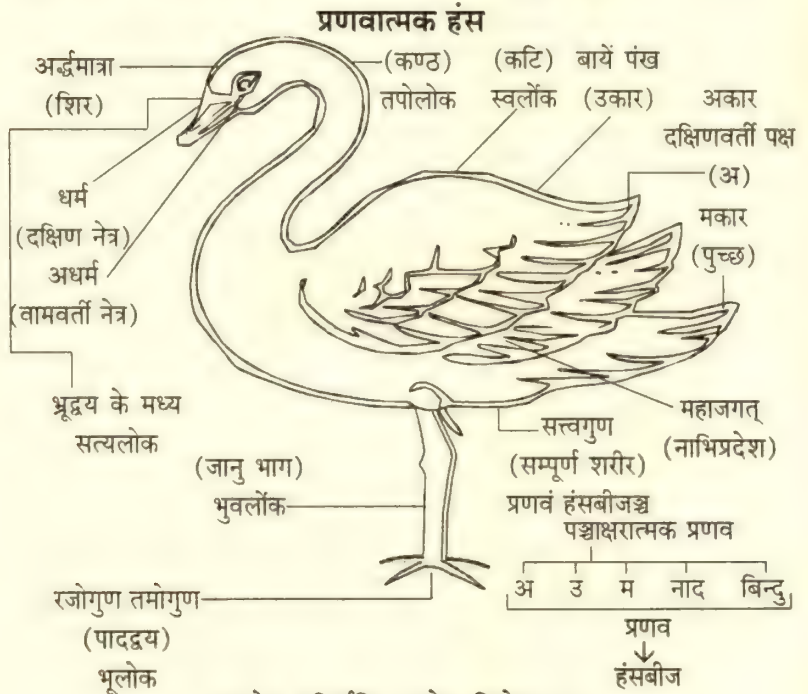 प्रणवात्मक हंस
अर्द्धमात्रा
(शिर)
(कण्ठ)
तपोलोक
(कटि)
स्वर्लोक
बायें पंख
(उकार)
अकार
दक्षिणवर्ती पक्ष
(अ)
मकार
(पुच्छ)
धर्म
(दक्षिण नेत्र)
अधर्म
(वामवर्ती नेत्र)
भ्रूद्वय के मध्य
सत्यलोक
महाजगत्
(नाभिप्रदेश)
सत्त्वगुण
(सम्पूर्ण शरीर)
(जानु भाग)
भुवर्लोक
प्रणवं हंसबीजञ्च
पञ्चाक्षरात्मक प्रणव
अ उ म नाद बिन्दु
प्रणव
हंसबीज
रजोगुण तमोगुण
(पादद्वय)
भूलोक